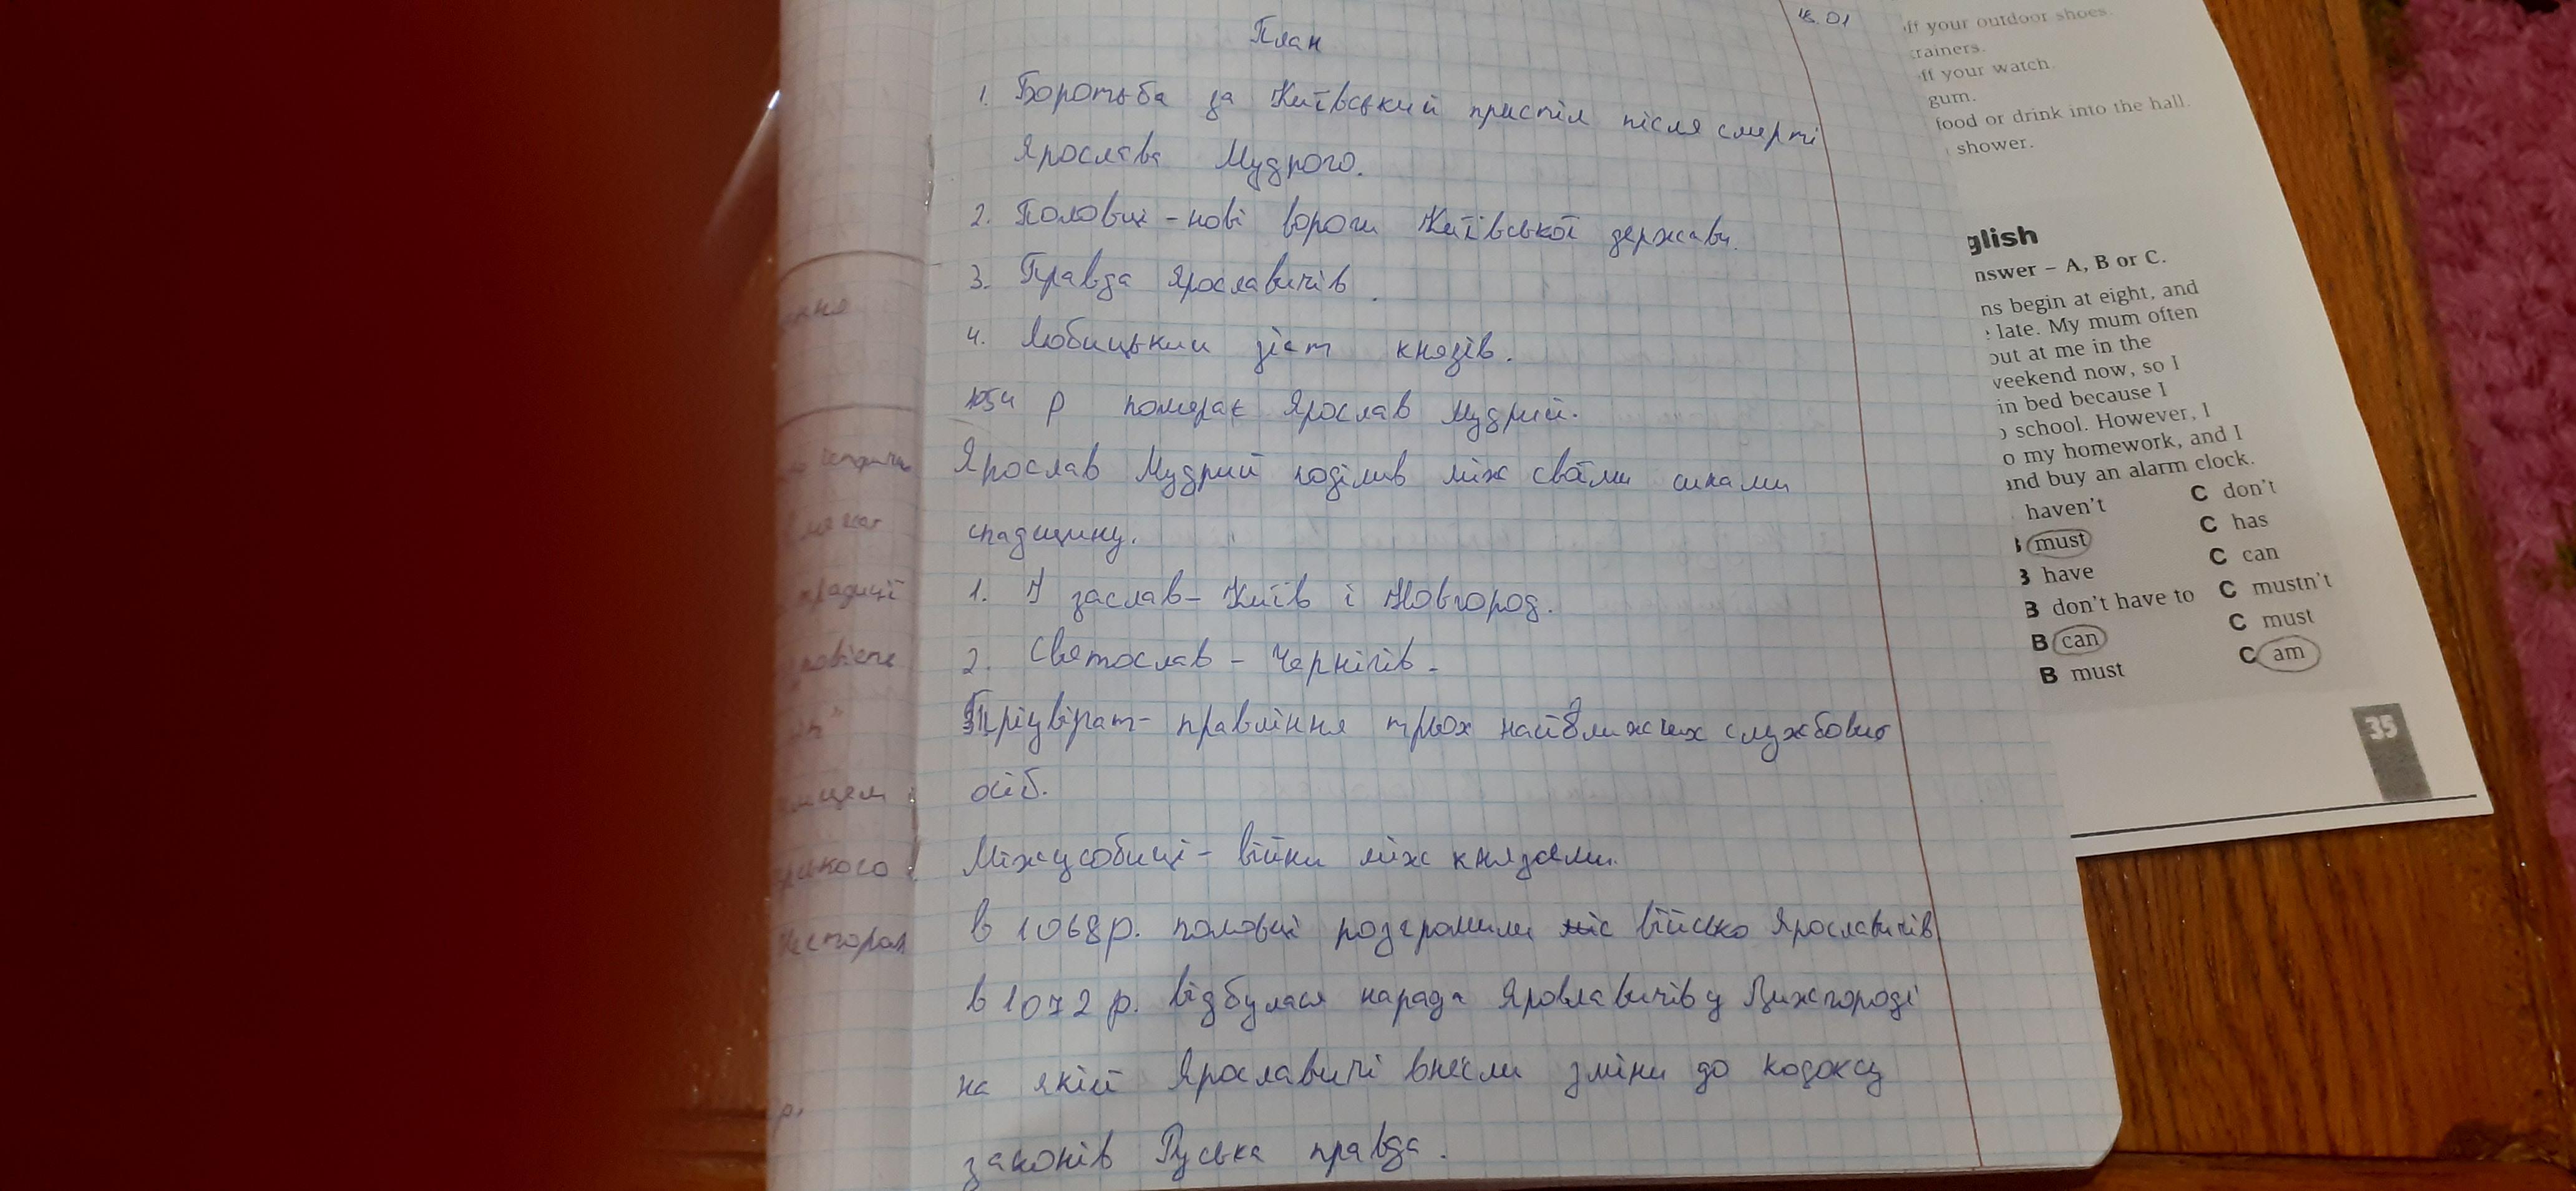 План
18.01
1. Боротьба за Київський пристіл після смерті
Ярослава Мудрого.
2. Половці - нові вороги Київської держави.
3. Правда Ярославичів.
4. Любицький зізт князів.
1054 р померає Ярослав Мудрий.
Ярослав Мудрий поділив між своїми синами
спадщину.
1. Ізаслав - Київ і Новгород.
2. Святослав - Чернігів.
Тріувірат - правління трьох найближчих службових
осіб.
Міжусобиці - війни між князями.
в 1068р. половці розгромили військо Ярославичів
в 1072 р. відбулася нарада Яровлавичів у Вижгороді
на якій Ярославичі внесли зміни до кодоксу
законів Руська правда.
ення
традиції
ицем
ського
р.
ff your outdoor shoes.
trainers.
ff your watch.
gum.
food or drink into the hall.
shower.
glish
nswer – A, B or C.
ns begin at eight, and
late. My mum often
out at me in the
weekend now, so I
in bed because I
o school. However, I
o my homework, and I
and buy an alarm clock.
haven't C don't
B must C has
B have C can
B don't have to C mustn't
B can C must
B must C am
35